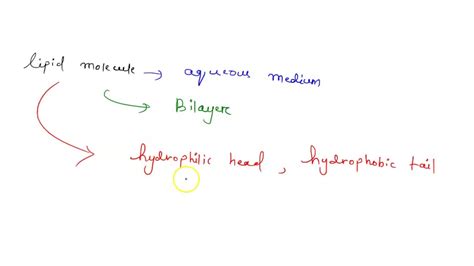 lipid molecule → aqueous medium
Bilayere
hydrophilic head , hydrophobic tail